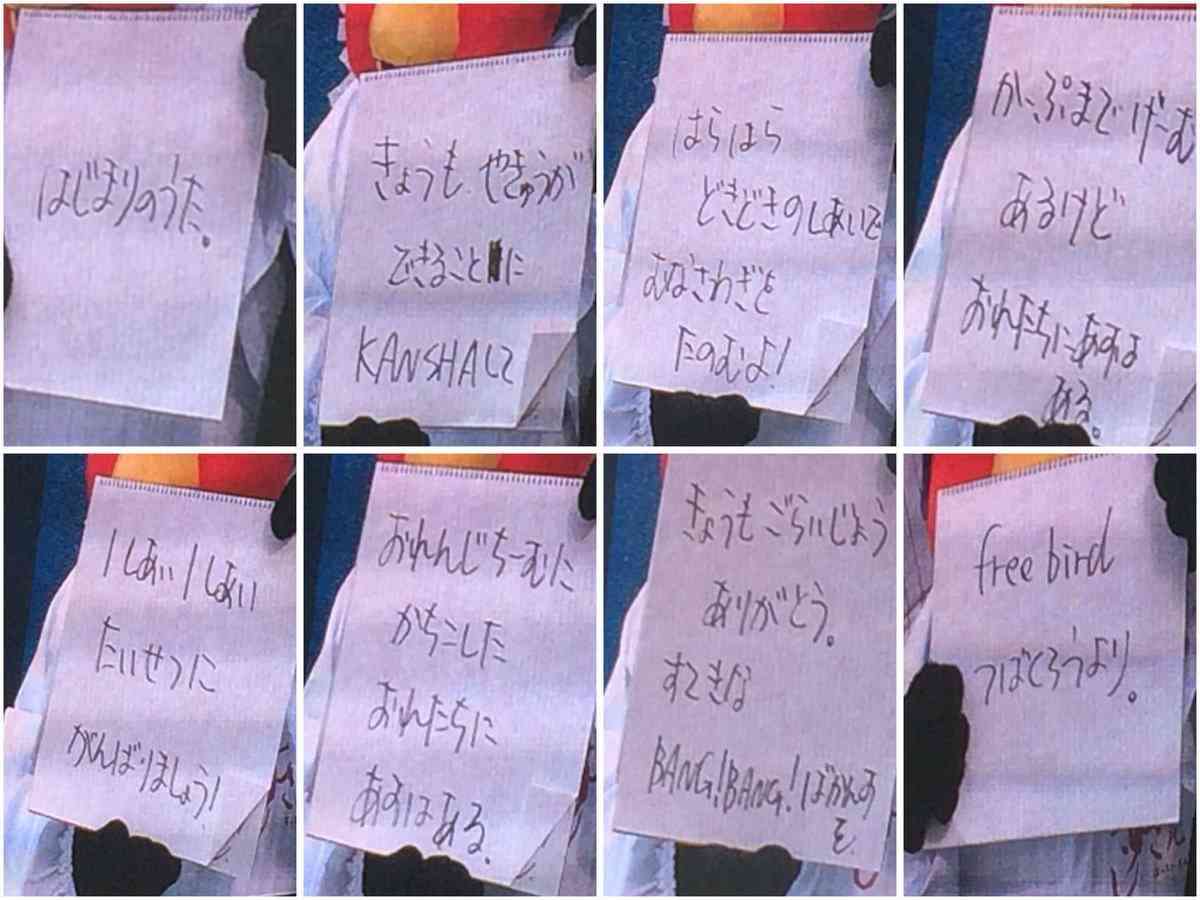 はじまりのうた。
きょうも やきゅうが
できること に
KANSHAして
はらはら
どきどきのしあいで
むなさわぎを
たのむよ!
かーぷまでげーむ
あるけど
おれたちにあすは
ある。
1しあい1しあい
たいせつに
がんばりましょう!
おれんじちーむに
かちこした
おれたちに
あすはある。
きょうもごらいじょう
ありがとう。
すてきな
BANG!BANG!ばかんす
を。
free bird
つばくろうより。